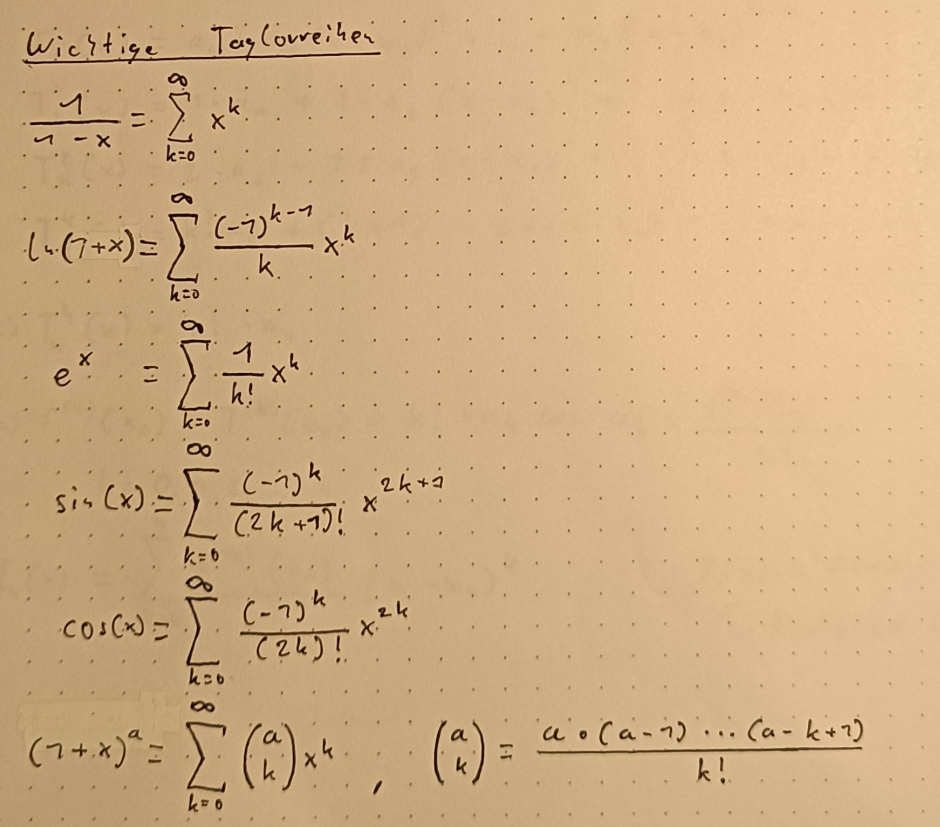 Wichtige Taylorreihen
1/(1-x) = ∑_{k=0}^{∞} x^k
ln(1+x) = ∑_{k=0}^{∞} (-1)^{k-1}/k x^k
e^x = ∑_{k=0}^{∞} 1/k! x^k
sin(x) = ∑_{k=0}^{∞} (-1)^k/(2k+1)! x^{2k+1}
cos(x) = ∑_{k=0}^{∞} (-1)^k/(2k)! x^{2k}
(1+x)^a = ∑_{k=0}^{∞} (a k) x^k , (a k) = a•(a-1)...(a-k+1)/k!